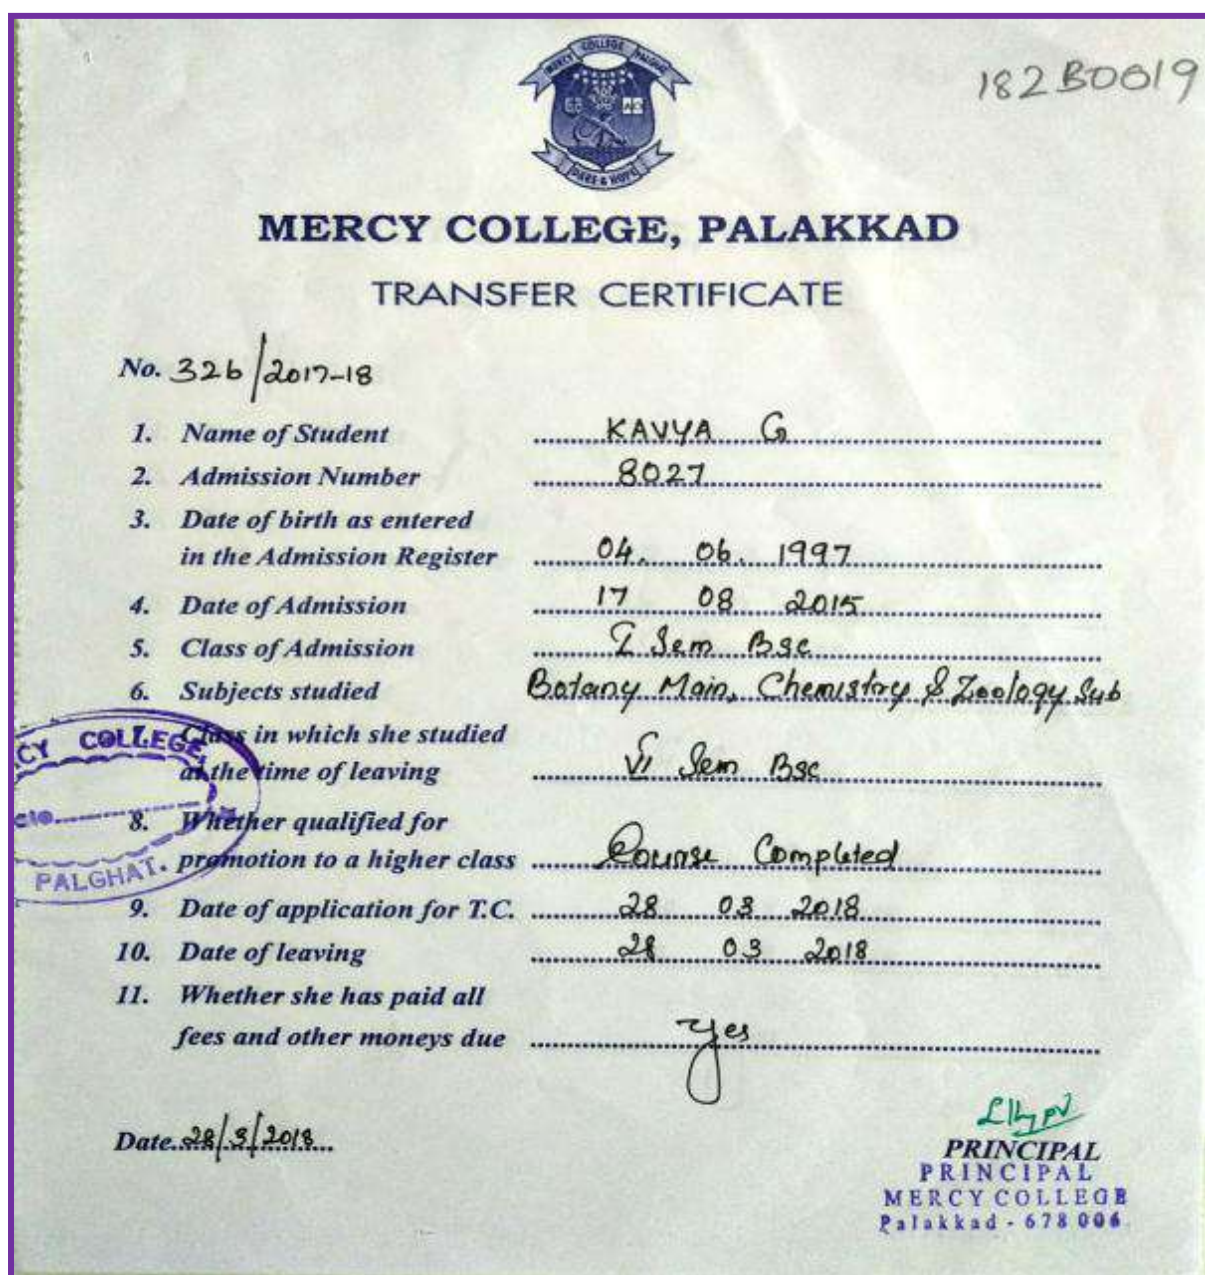 MERCY COLLEGE PALGHAT
182B0019
DARE & HOPE
MERCY COLLEGE, PALAKKAD
TRANSFER CERTIFICATE
No. 326/2017-18
1. Name of Student KAVYA G
2. Admission Number 8027
3. Date of birth as entered
in the Admission Register 04. 06. 1997
4. Date of Admission 17 08 2015
5. Class of Admission I Sem Bsc
6. Subjects studied Botany Main, Chemistry & Zoology Sub
7. Class in which she studied
at the time of leaving VI Sem Bsc
8. Whether qualified for
promotion to a higher class Course Completed
9. Date of application for T.C. 28 03 2018
10. Date of leaving 28 03 2018
11. Whether she has paid all
fees and other moneys due Yes
CY COLLEGE,
PALGHAT.
Date 28/3/2018
PRINCIPAL
PRINCIPAL
MERCY COLLEGE
Palakkad - 678 006